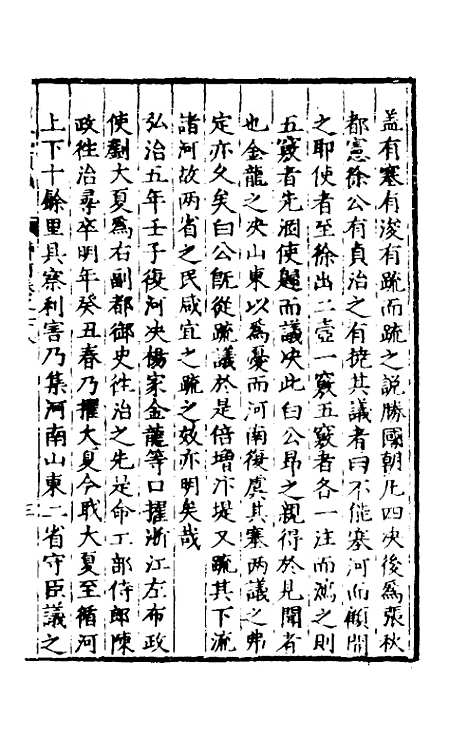 盖有塞有浚有疏而疏之說勝國朝凡四决後爲張秋
都憲徐公有貞治之有撓其議者曰不能塞河而顧開
之耶使者至徐出二壺一竅五竅者各一注而瀉之則
五竅者先涸使歸而議决此白公昂之親得於見聞者
也金龍之决山東以爲憂而河南復虞其塞兩議之弗
定亦久矣白公旣從疏議於是倍增汴堤又疏其下流
諸河故两省之民咸宜之疏之效亦明矣哉
弘治五年壬子復河决楊家金龍等口擢浙江左布政
使劉大夏爲右副都御史徃治之先是命工部侍郎陳
政徃治尋卒明年癸丑春乃擢大夏今職大夏至循河
上下十餘里具察利害乃集河南山東二省守臣議之